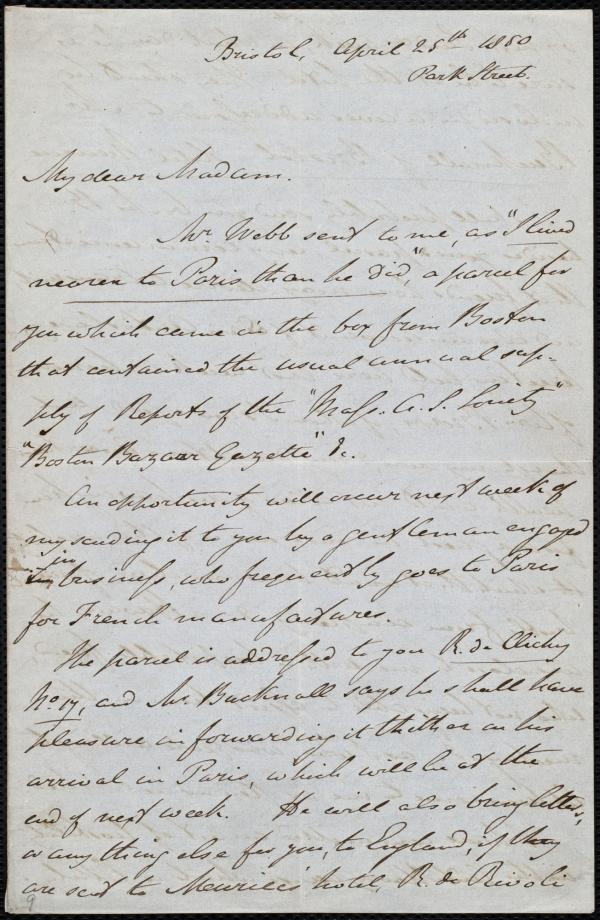 Bristol, April 25th 1850
Park Street.
My dear Madam.
Mr. Webb sent to me, as "I lived
nearer to Paris than he did," a parcel for
you which came in the box from Boston
that contained the usual annual sup-
ply of Reports of the "Mass. A. S. Society"
"Boston Bazaar Gazette" &c.
An opportunity will occur next week of
my sending it to you by a gentleman engaged
in business, who frequently goes to Paris
for French manufactures.
The parcel is addressed to you R. de Clichy
No. 17, and Mr. Bucknall says he shall have
pleasure in forwarding it thither on his
arrival in Paris, which will be at the
end of next week. He will also bring letters,
or any thing else for you, to England, if they
are sent to Meurice's hotel, R. de Rivoli
9